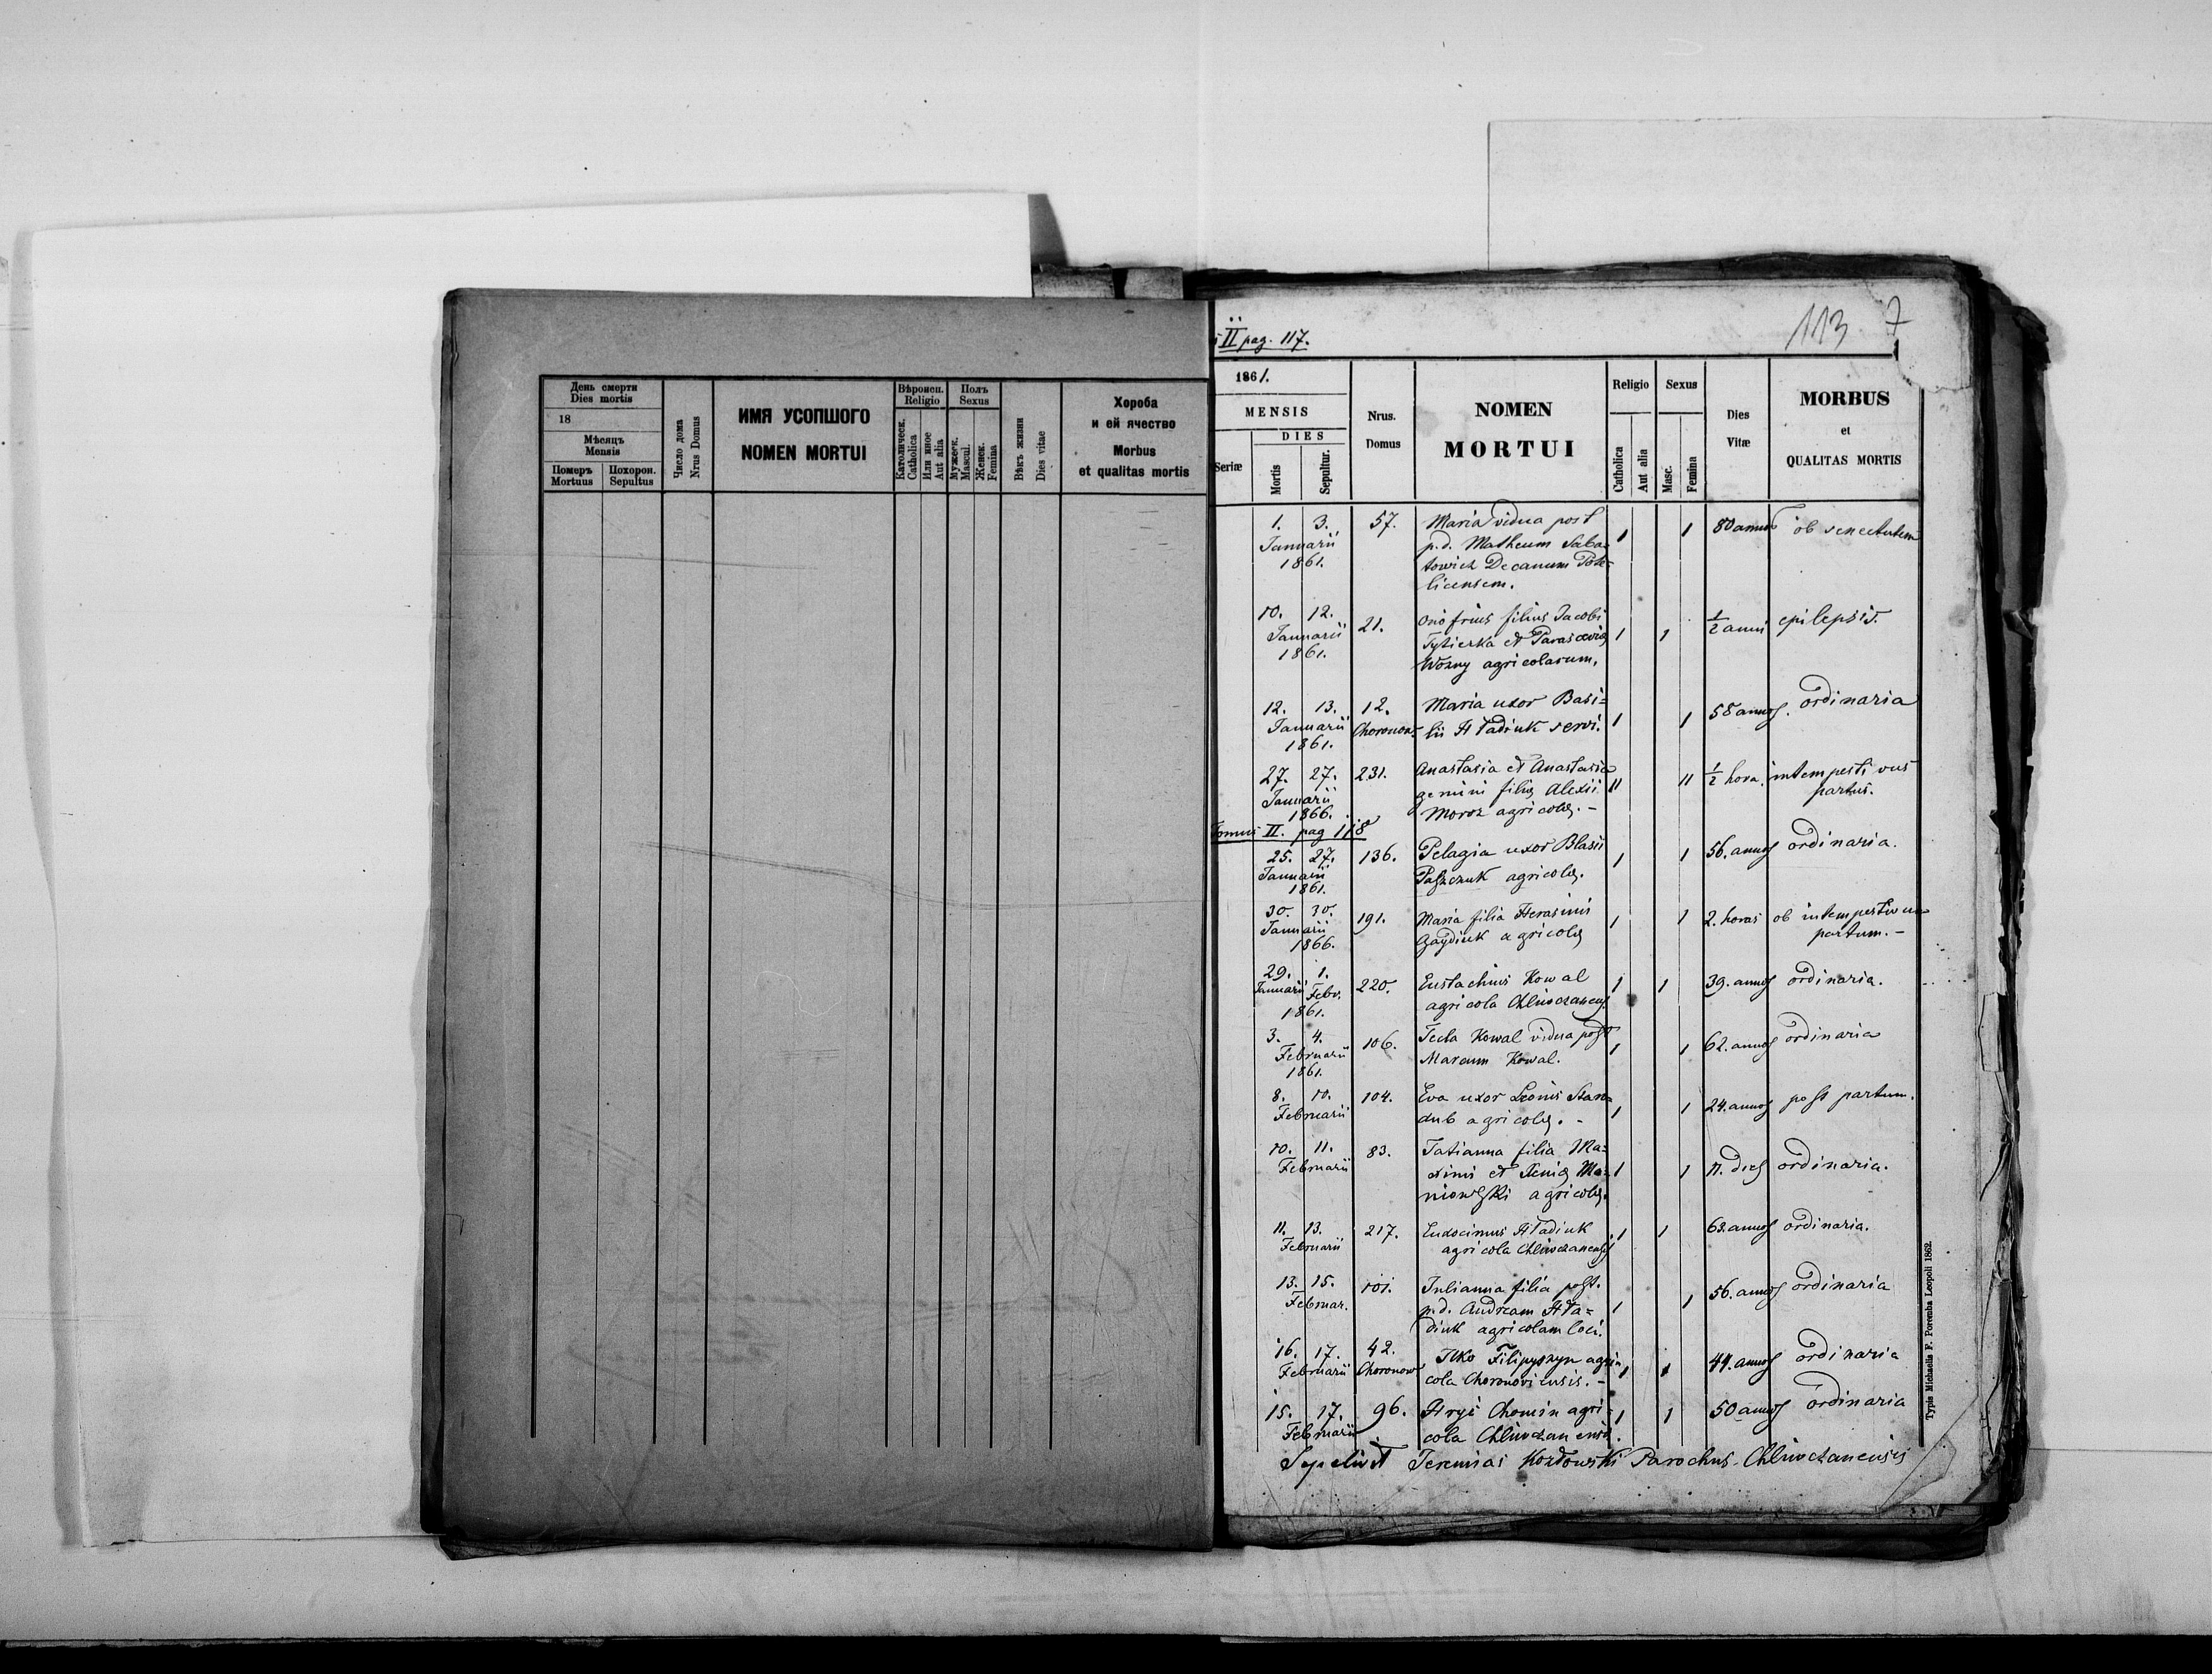 День смерти
Dies mortis
18
Мѣсяцъ
Mensis
Померъ
Mortuus
Похорон.
Sepultus
Число дома
Nrus Domus
ИМЯ УСОПШОГО
NOMEN MORTUI
Вѣроисп.
Religio
Католическ.
Catholica
Или иное
Aut alia
Полъ
Sexus
Мужеск.
Mascul.
Женск.
Femina
Вѣкъ жизни
Dies vitae
Хороба
и ей ячество
Morbus
et qualitas mortis
II pag. 117.
113 7
1861.
MENSIS
DIES
Seriæ
Mortis
Sepultur.
Nrus.
Domus
NOMEN
MORTUI
Religio
Catholica
Aut alia
Sexus
Masc.
Femina
Dies
Vitæ
MORBUS
et
QUALITAS MORTIS
1. 3. 57. Maria vidua post 1 1 80 annos ob senectutem
Januarii p.d. Matheum Saba=
1861. towicz Decanum Poty=
licensem.
10. 12. 21. Onofrius filius Jacobi 1 1 ½ anni epilepsis.
Januarii Tyticzka et Parascevię
1861. Wozny agricolarum.
12. 13. 12. Maria uxor Basi= 1 1 58 annos. ordinaria
Januarii Choronow. lii Hładiuk servi.
1861.
27. 27. 231. Anastasia et Anastasia 11 11 ½ hora. intempestivus
Januarii gemini filię Alexii partus.
1866. Moroz agricolę. -
Tomus II. pag 118
25. 27. 136. Pelagia uxor Blasii 1 1 56. annos ordinaria.
Januarii Paszczuk agricolę.
1861.
30. 30. 191. Maria filia Herasimi 1 1 2. horas ob intempestivum
Januarii Gaydiuk agricolę partum. -
1866.
29. 1. 220. Eustachius Kowal 1 1 39. annos ordinaria.
Januarii Febr. agricola Chliwczanens.
1861.
3. 4. 106. Tecla Kowal vidua post 1 1 62. annos ordinaria
Februarii Marcum Kowal.
1861.
8. 10. 104. Eva uxor Leonis Stan= 1 1 24. annos post partum.
Februarii dub agricolę. -
10. 11. 83. Tatianna filia Ma= 1 1 11. dies ordinaria.
Februarii ximi et Xenię Ma=
niowski agricolę.
11. 13. 217. Eudocimus Hładiuk 1 1 63. annos ordinaria.
Februarii agricola Chliwczanensis
13. 15. 101. Julianna filia post. 1 1 56. annos ordinaria
Februar. p.d. Andream Hła=
diuk agricolam loci.
16. 17. 42. Ilko Filipyszyn agri= 1 1 44. annos ordinaria
Februarii Choronow cola Choronoviensis. -
15. 17. 96. Hryć Chomin agri= 1 1 50 annos ordinaria
Februarii cola Chliwczanensis.
Sepelivit Jeremias Kozłowski Parochus Chliwczanensis
Typis Michaelis F. Poremba Leopoli 1862.